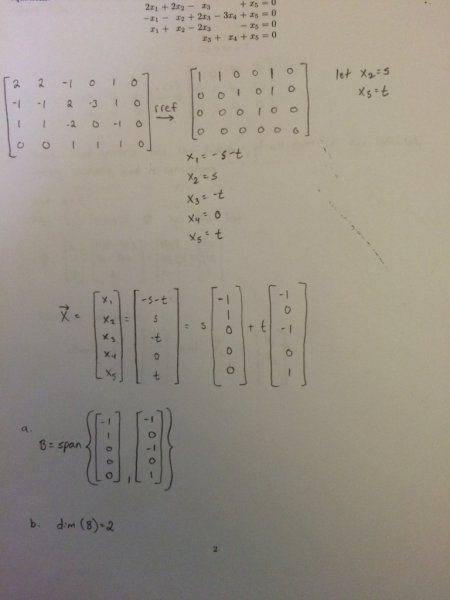 2x₁ + 2x₂ − x₃ + x₅ = 0
−x₁ − x₂ + 2x₃ − 3x₄ + x₅ = 0
x₁ + x₂ − 2x₃ − x₅ = 0
x₃ + x₄ + x₅ = 0
2 2 -1 0 1 0
-1 -1 2 -3 1 0
1 1 -2 0 -1 0
0 0 1 1 1 0
rref →
1 1 0 0 1 0
0 0 1 0 1 0
0 0 0 1 0 0
0 0 0 0 0 0
let x₂=s
x₅=t
x₁ = -s-t
x₂ = s
x₃ = -t
x₄ = 0
x₅ = t
x⃗ = [x₁ x₂ x₃ x₄ x₅] = [-s-t s -t 0 t] = s [-1 1 0 0 0] + t [-1 0 -1 0 1]
a.
B = span { [-1 1 0 0 0], [-1 0 -1 0 1] }
b. dim (B)=2
2